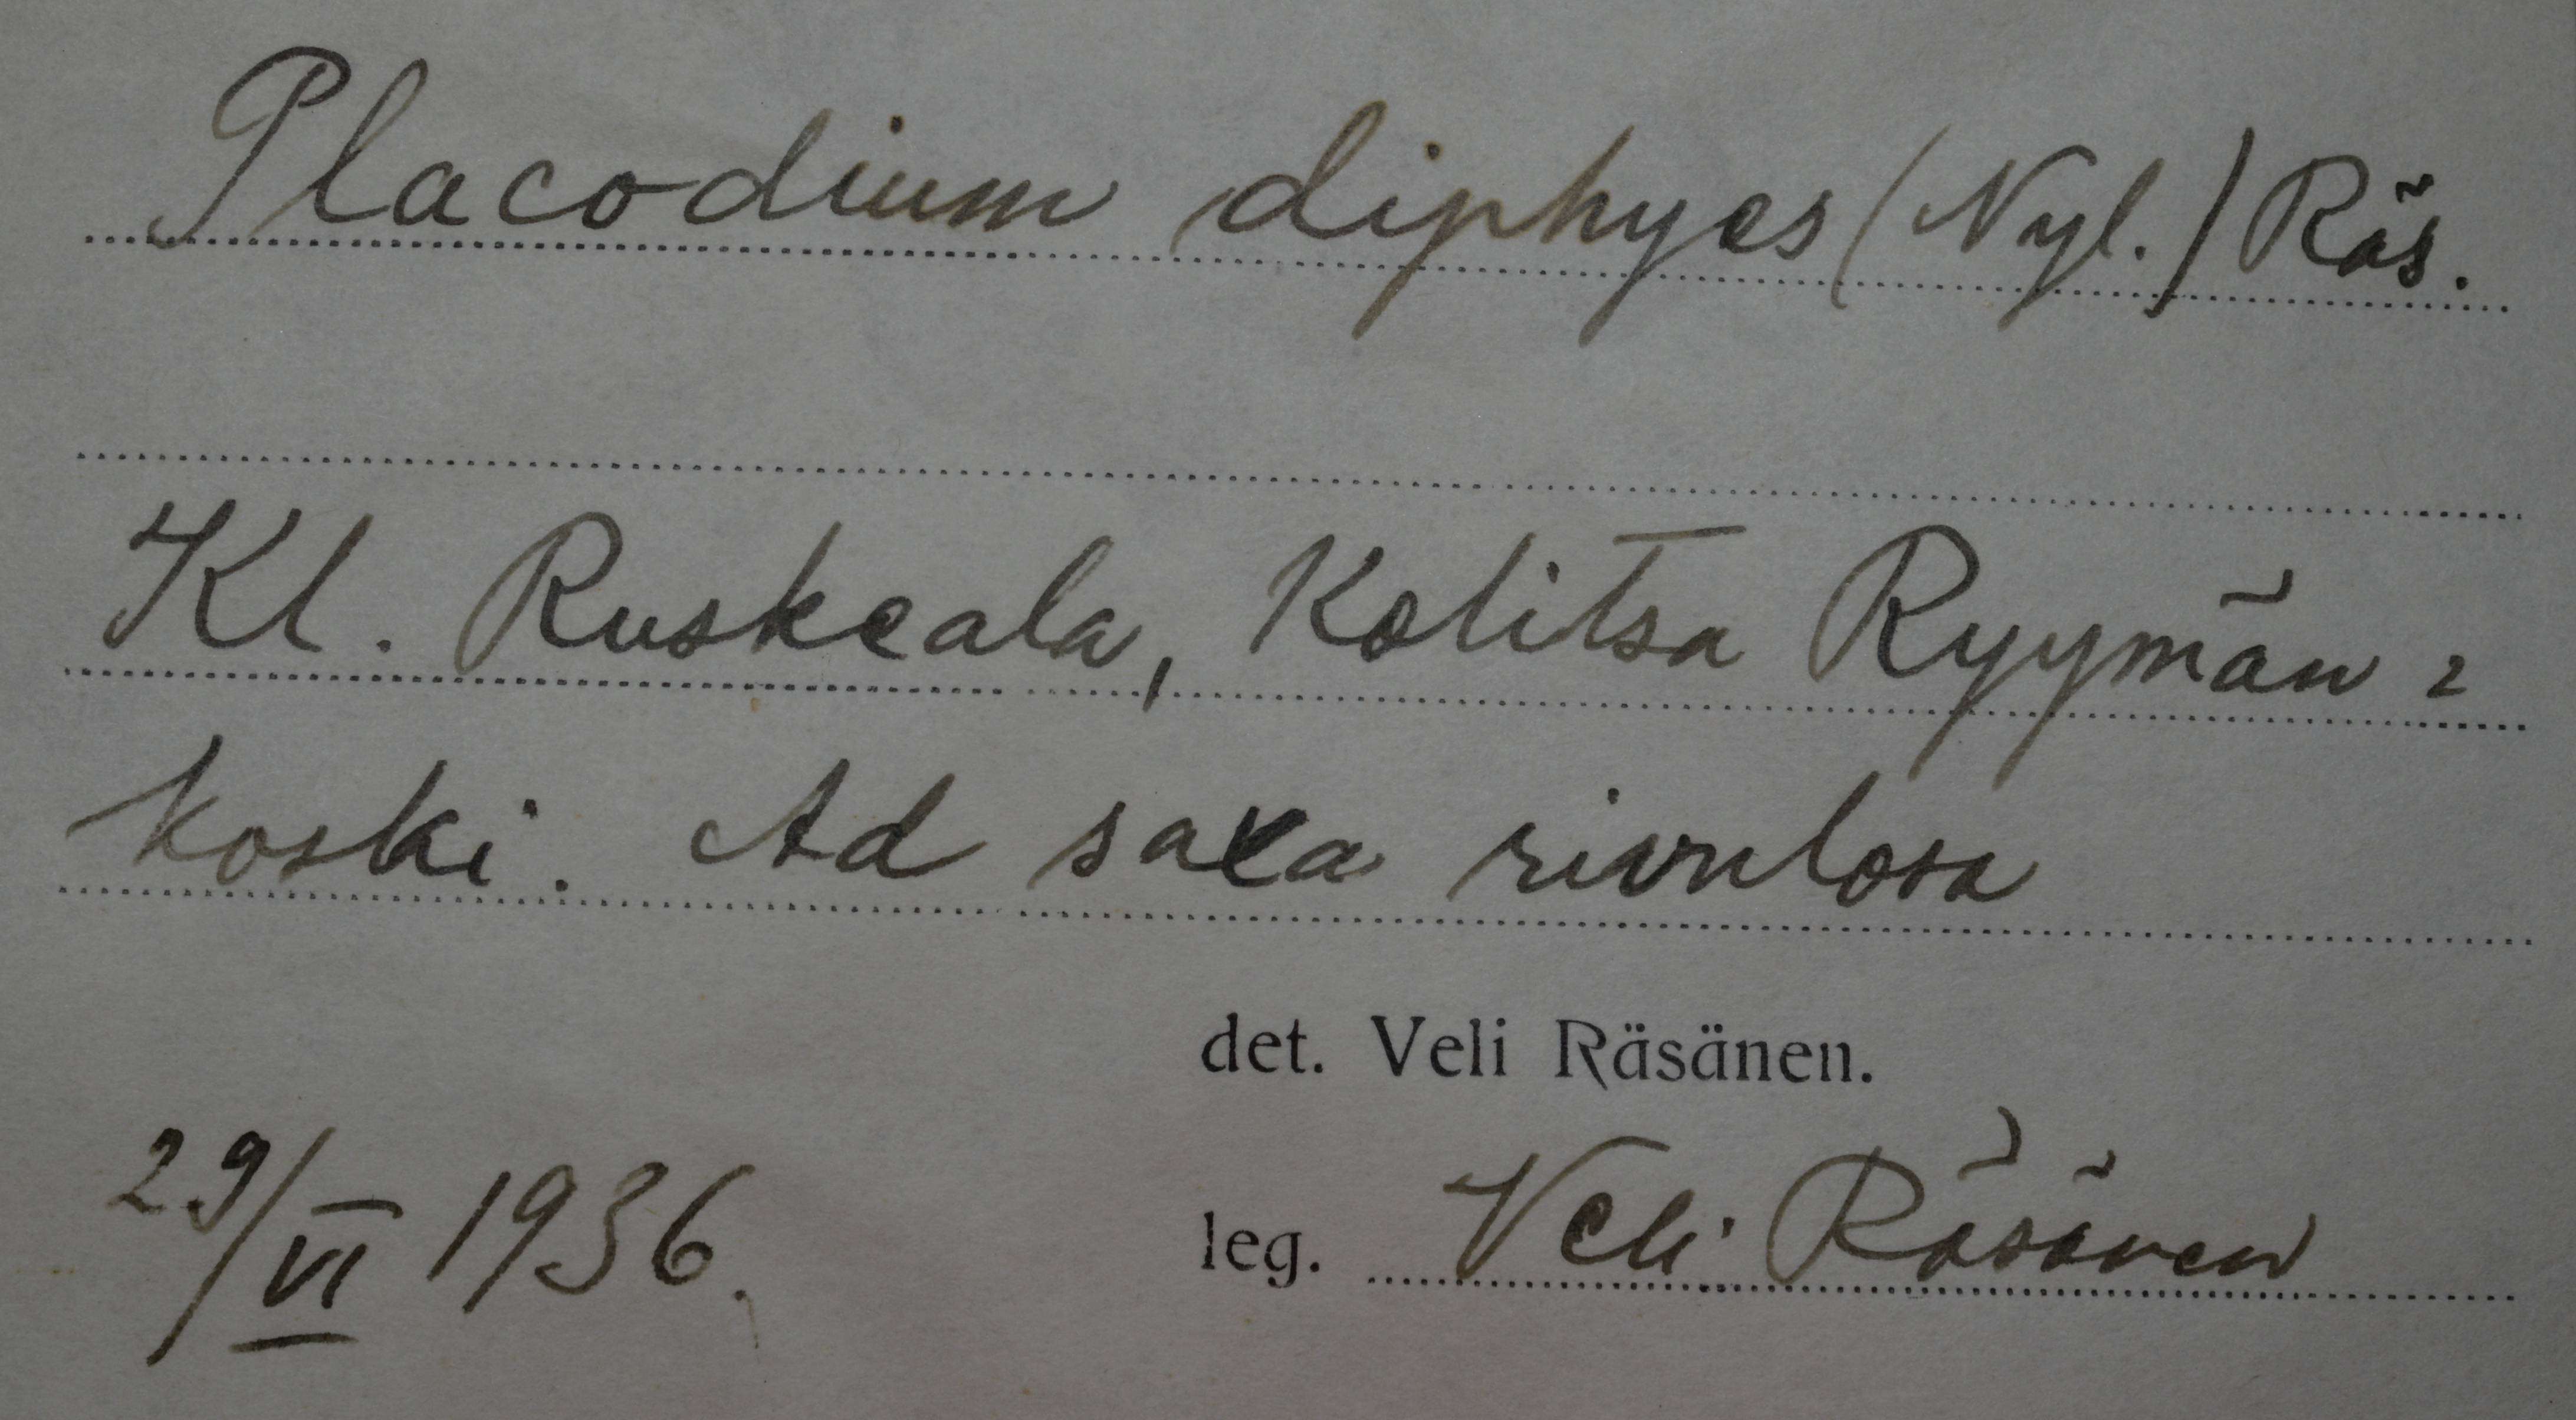 Placodium diphyes (Nyl.) Räs.
Kl. Ruskeala, Kolitsa Ryymän=
koski. Ad saxa rivulosa
det. Veli Räsänen.
29/VI 1936.
leg. Veli Räsänen